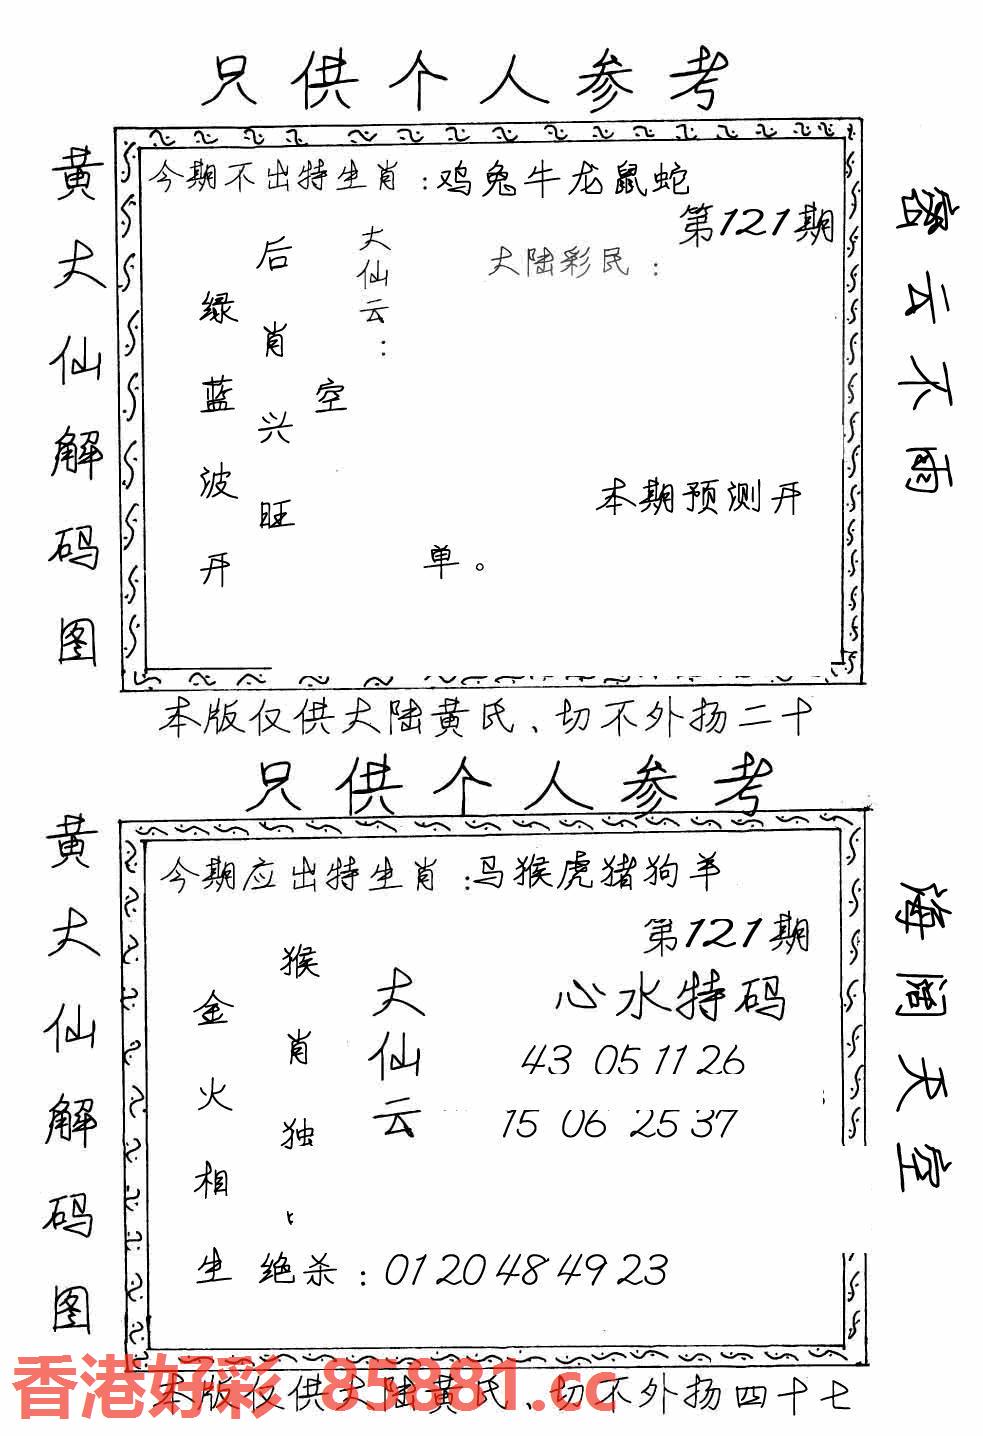 只供个人参考
黄大仙解码图
今期不出特生肖:鸡兔牛龙鼠蛇
第121期
大陆彩民:
大仙云:
后肖兴旺
绿蓝波开
空
本期预测开
单。
密云不雨
本版仅供大陆黄氏、切不外扬二十
只供个人参考
黄大仙解码图
今期应出特生肖:马猴虎猪狗羊
第121期
心水特码
43 05 11 26
15 06 25 37
大仙云
猴肖独
金火相生
绝杀:01 20 48 49 23
海阔天空
本版仅供大陆黄氏、切不外扬四十七
香港好彩 85881.cc